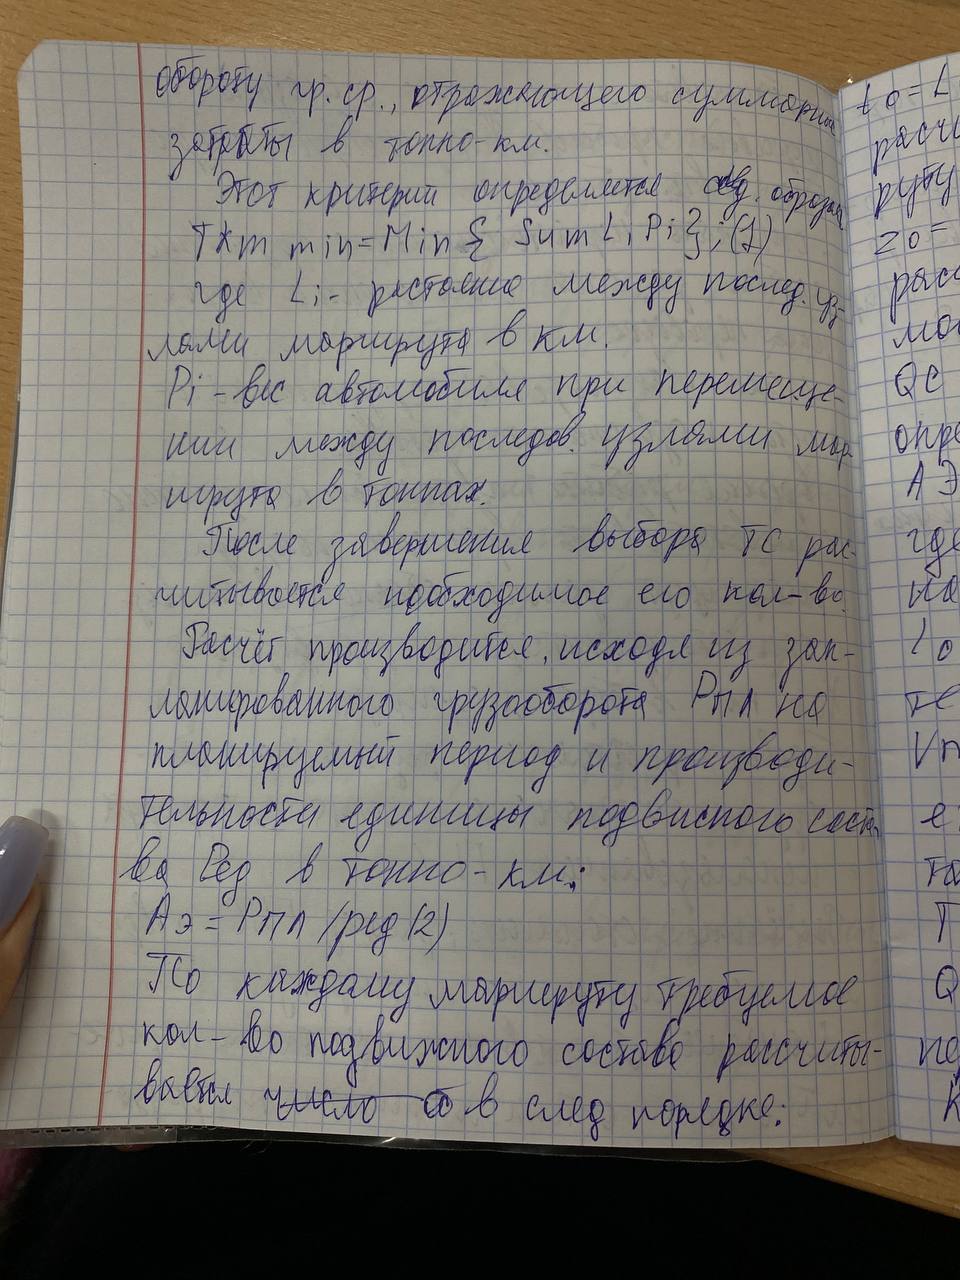 обороту гр. ср., отражающего суммарные
затраты в тонно-км.
Этот критерий определяется след. образом
Ткm min = Min { Sum Li Pi}; (1)
где Li - растояние между послед. уз-
лами маршрута в км.
Pi - вес автомобиля при перемеще-
нии между последов. узлами мар-
шрута в тоннах.
После завершения выбора ТС рас-
читывается необходимое его кол-во.
Расчёт производится, исходя из зап-
ланированного грузооборота Рпл на
планируемый период и производи-
тельности единицы подвисного соста-
ва Ред в тонно-км:
Аэ = Рпл /ред (2)
По каждому маршруту требуемое
кол-во подвижного состава рассчиты-
вается число в след порядке:
to = L
расч
руту
Zo =
расс
мо
QC
опре
АЭ
где
на
Lo
те
Vп
е
та
Т
Q
по
К